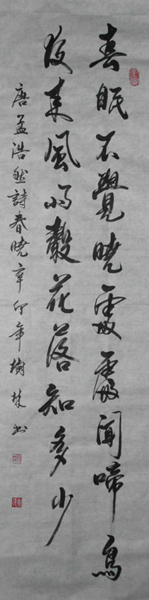 春眠不覺曉處處聞啼鳥
夜来風雨聲花落知多少
唐孟浩然詩春曉辛卯年樹林书